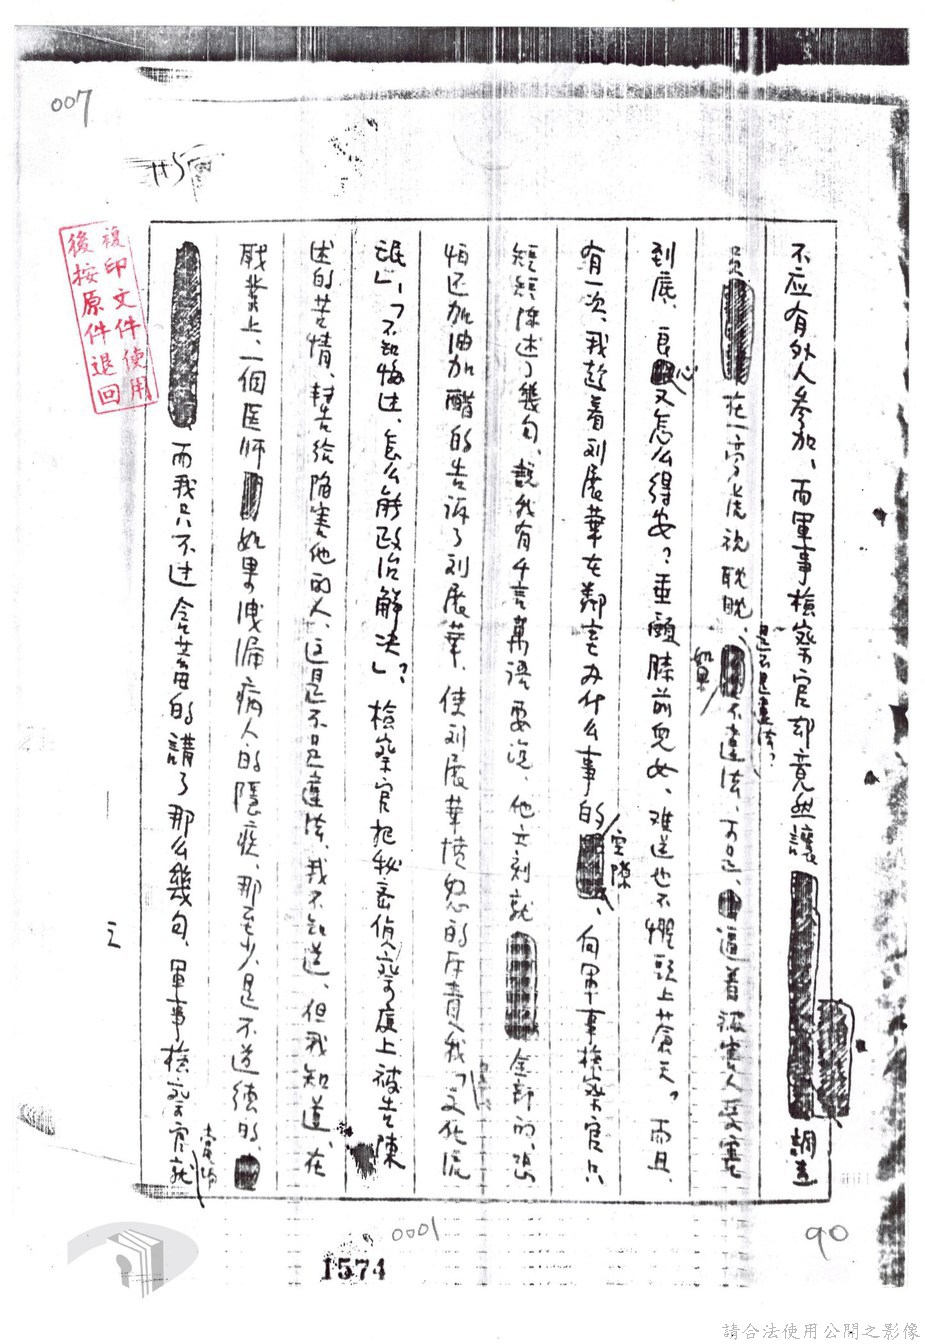 007
複印文件使用
後按原件退回
不应有外人参加、而軍事檢察官却竟然讓調查
員在一旁虎視眈眈、是不是違法?如果不違法、可是、逼着被害人受害
到底、良心又怎么得安?垂顧膝前兒女、难道也不懼頭上蒼天。而且、
有一次、我趁着刘展華在鄰室办什么事的空隙、向軍事檢察官只
短短陳述了幾句、說我有千言萬語要說、他立刻就全部的、
怕还加油加醋的告訴了刘展華、使刘展華憤怒的斥責我「文化流
氓」、「不知悔过、怎么能政治解决」?檢察官把秘密偵察庭上被告陳
述的苦情、轉告給陷害他的人、這是不是違法、我不知道、但我知道、在
职業上、一個医师如果洩漏病人的隱疾、那至少是不道德的
而我只不过含蓄的講了那么幾句、軍事檢察官就當場
三
0001
90
1574
請合法使用公開之影像